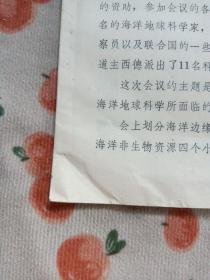 的资助，参加会议的各
名的海洋地球科学家，
察员以及联合国的一些
道主西德派出了11名科
这次会议的主题是
海洋地球科学所面临的
会上划分海洋边缘
海洋非生物资源四个小